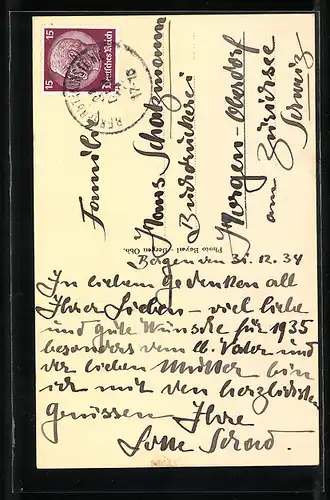 15 Deutsches Reich 15
Familie
Hans Schatzmann
Buchdruckerei
Horgen-Oberdorf
am Zürichsee
Schweiz
Photo Bayerl - Bergen Obb.
Bergen den 31.12.34
In liebem Gedenken all
Ihrer Lieben - viel liebe
und gute Wünsche für 1935
besonders dem lb. Vater und
der lieben Mutter bin
ich mit den herzlichsten
Grüssen Ihre
Lotte